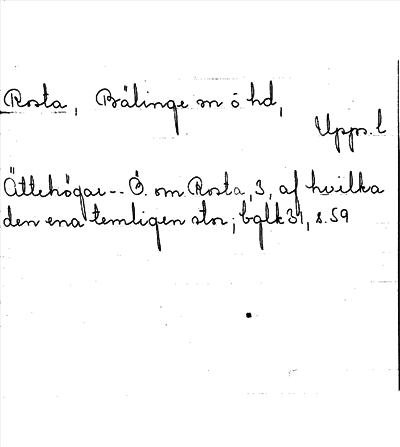 Rosta, Bälinge sn o hd,
Upps. l
Ättehögar-- Ö. om Rosta, 3, af hvilka
den ena temligen stor; bglk 31, s. 59